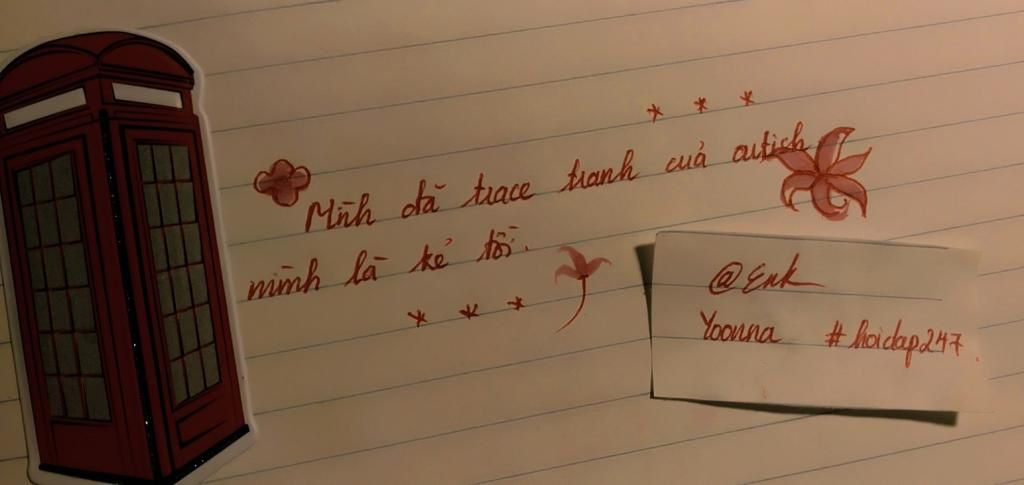 * * *
Mình đã trace tranh của autish
mình là kẻ tồi.
* * *
@Enk
Yoonna #hoidap247